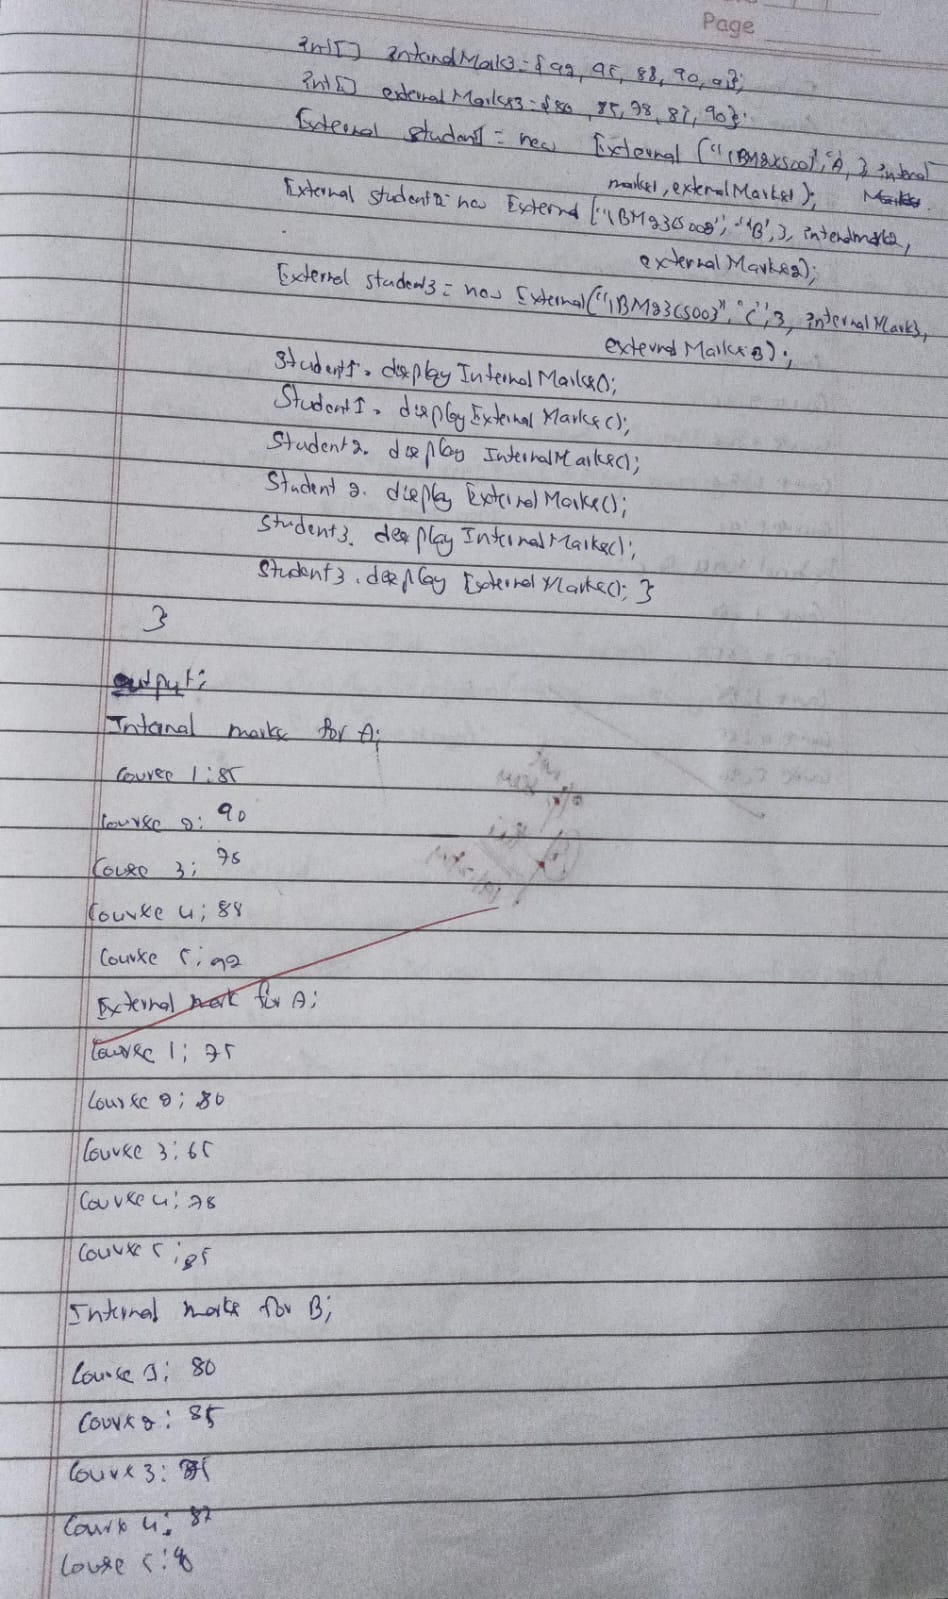 Page
int[] internalMarks3 = {92, 95, 88, 90, 91};
int[] externalMarks3 = {80, 85, 78, 87, 90};
External student1 = new External ("1BM22CS001", "A", 3, internal
marks1, externalMarks1);
External student2 = new External ("1BM23CS002", "B", 3, internalmarks2,
externalMarks2);
External student3 = new External("1BM23CS003", "C", 3, internalMarks3,
externalMarks3);
Student1. displayInternalMarks();
Student1. displayExternalMarks();
Student2. displayInternalMarks();
Student2. displayExternalMarks();
Student3. displayInternalMarks();
Student3. displayExternalMarks(); }
}
output:
Internal marks for A;
Course 1: 85
Course 2: 90
Course 3; 78
Course 4; 88
Course 5: 92
External mark for A;
Course 1; 75
Course 2; 80
Course 3: 65
Course 4; 78
Course 5; 85
Internal marks for B;
Course 1; 80
Course 2: 85
Course 3:
Course 4: 87
Course 5: